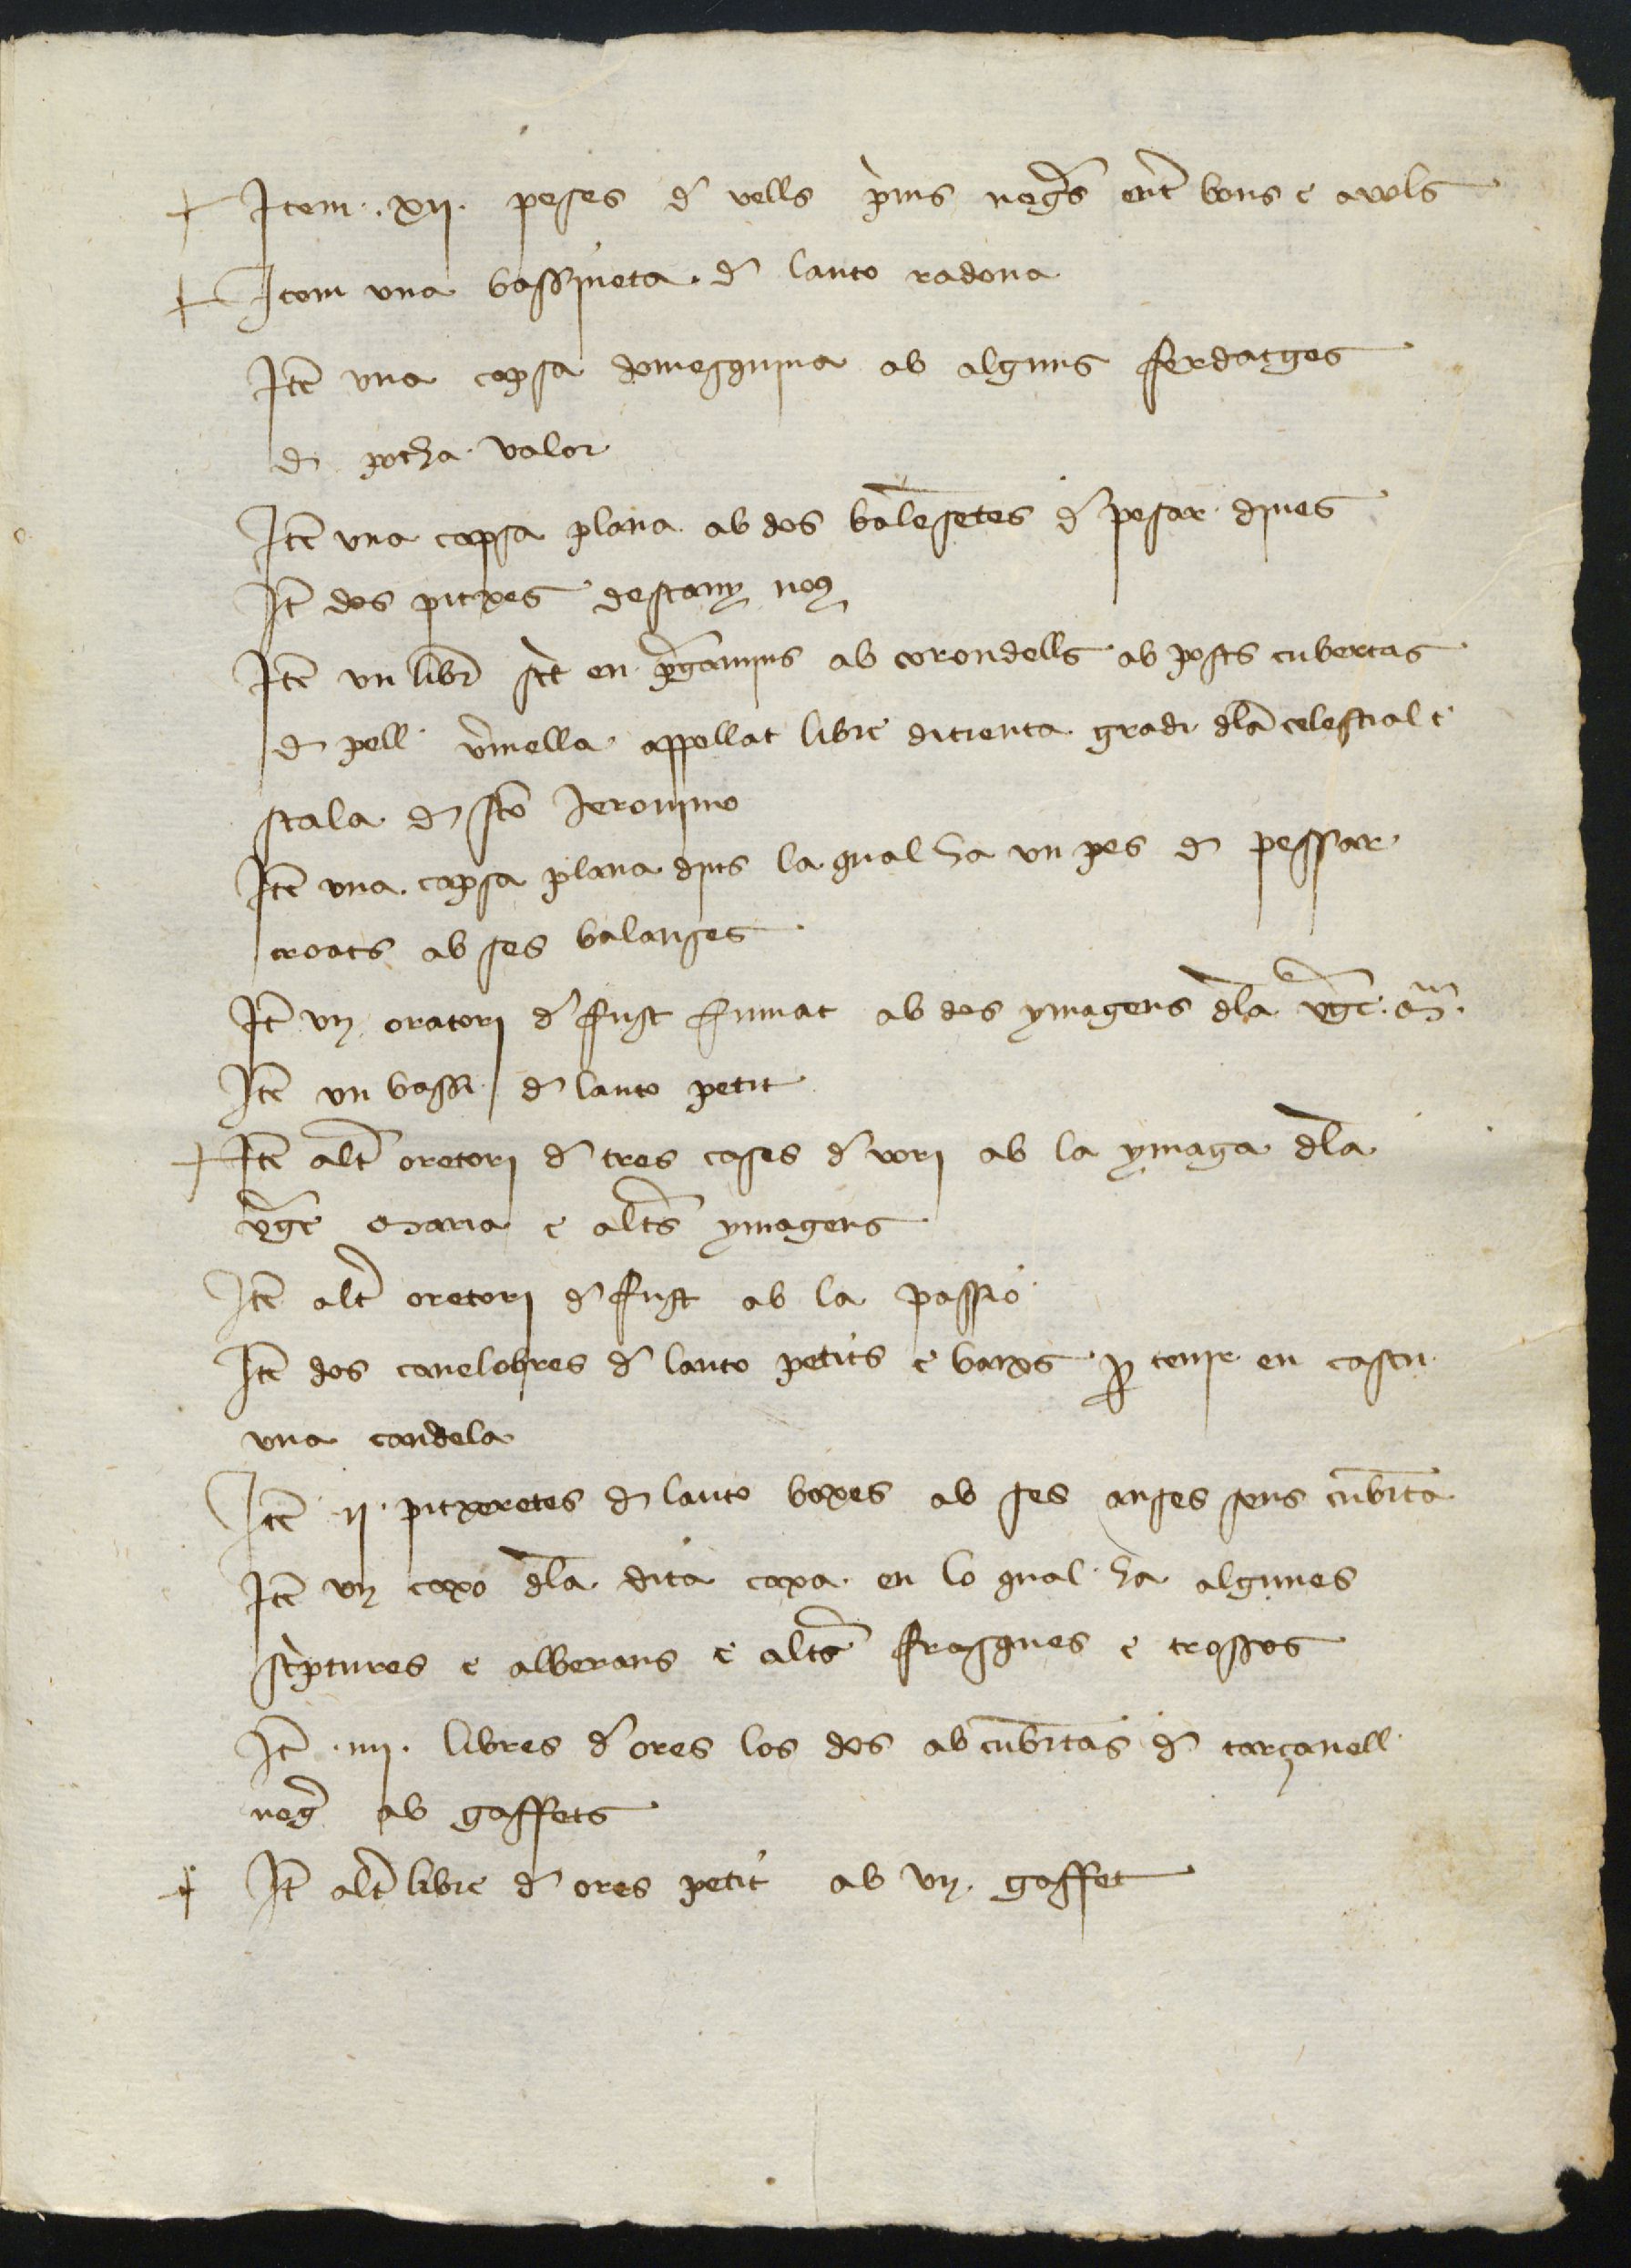 + Item .xii. peses d vells pms negs ent bons e avols
+ Item una bassineta d lauto radona
Ite una capsa domesquina ab alguns ferdatges
d pocha valor
Ite una capsa plana ab dos balesetes d pesar dines
It dos pitxes destany nou
Ite un libr sct en pgamins ab corondells ab posts cubertas
d pell vmella appellat libre ditrenta gradi dla celestial e
scala d sto Jeronimo
Ite una capsa plana dins la qual ha un pes d pessar
croats ab ses balanses
It un oratori d fust fumat ab dos ymagens dla vge ma
Ite un bassi d lauto petit
+ Ite alt oretori d tres cases d vori ab la ymaga dla
vge Maria e alts ymagens
Ite alt oretori d fust ab la passio
Ite dos canelobres d lauto petits e baixs p tenir en cascu
una candela
Ite .ii. pitxeretes d lauto boxes ab ses anses sens cubta
Ite un caxo dla dita caxa en lo qual ha algunes
scptures e albarans e alts frasques e trossos
It .iiii. libres d ores los dos ab cubtas d tarçanell
neg ab gaffets
+ It alt libre d ores petit ab un gaffet